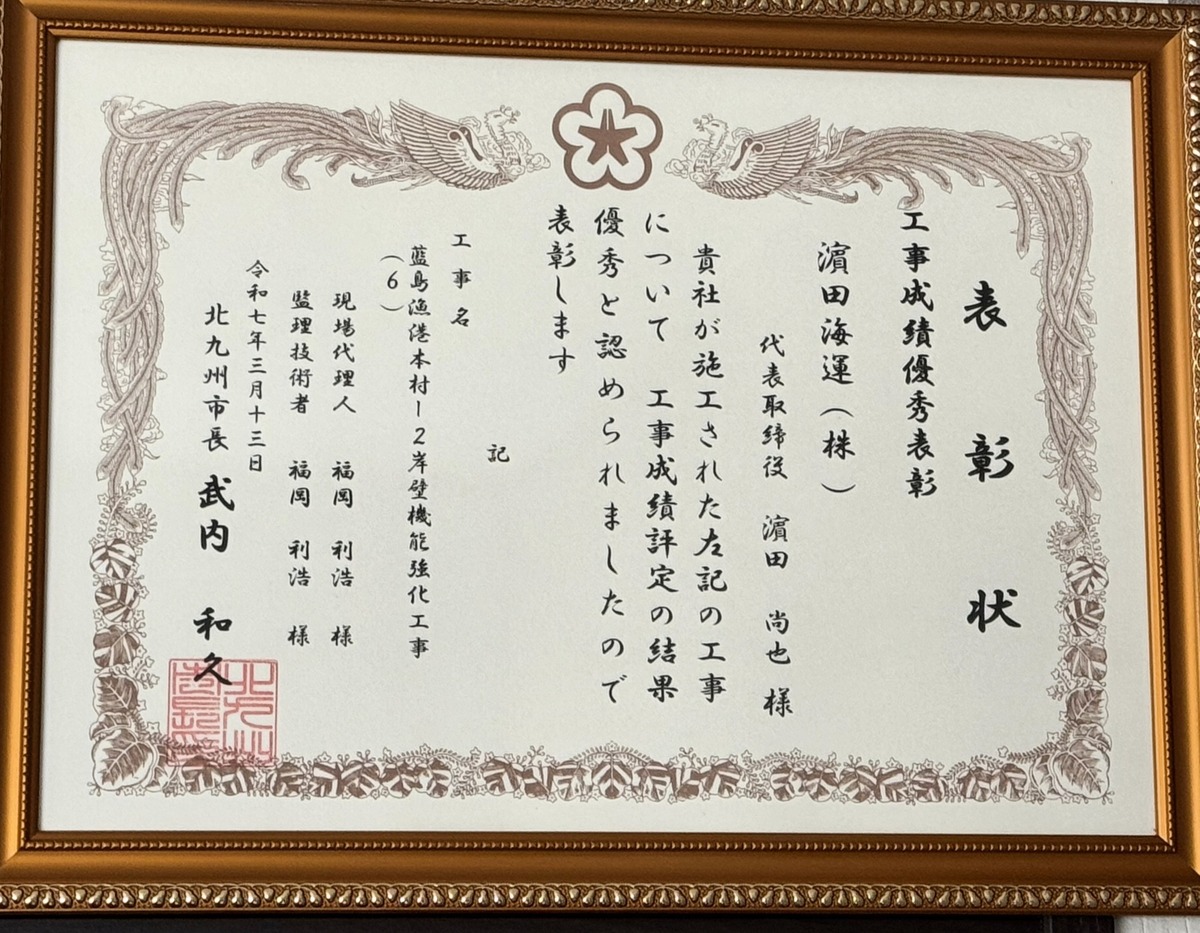 表彰状
工事成績優秀表彰
濵田海運（株）
代表取締役 濵田 尚也 様
貴社が施工された左記の工事
について 工事成績評定の結果
優秀と認められましたので
表彰します
記
工事名
藍島漁港本村－2岸壁機能強化工事
（6）
現場代理人 福岡 利浩 様
監理技術者 福岡 利浩 様
令和七年三月十三日
北九州市長 武内 和久